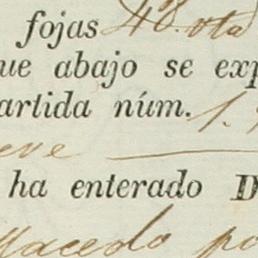 fojas 48. vta
ue abajo se exp
artida núm. 1.
eve
ha enterado D
Macedo po